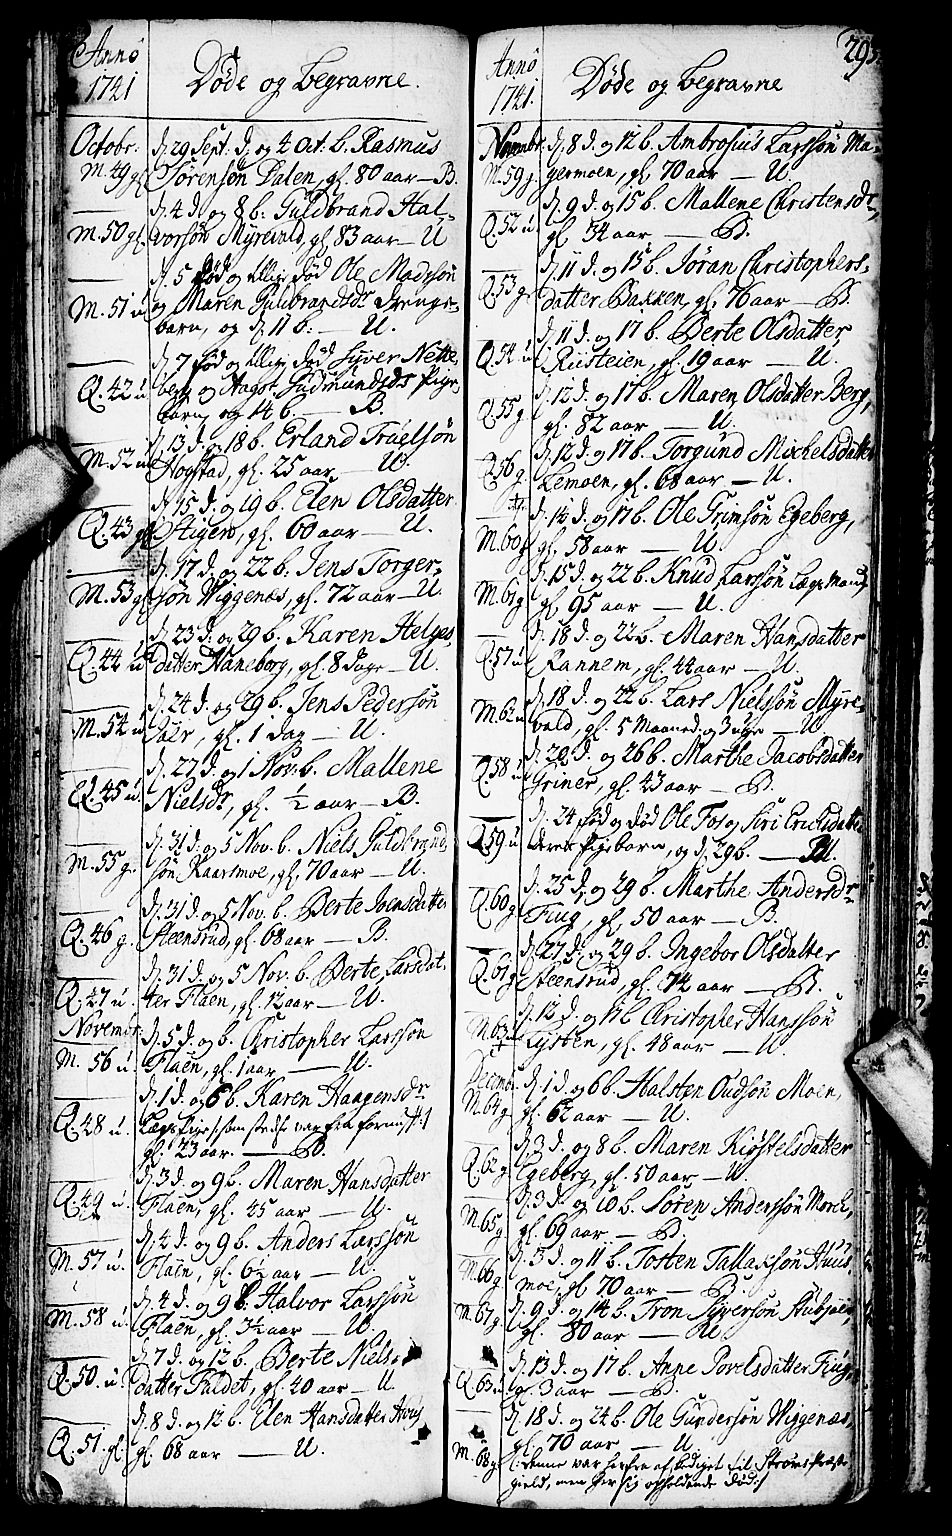 Anno
1741
Døde og begravne.
Octobr. d. 29 Sept. d. og 4 Oct. b. Rasmus
M. 49 gl Sørensøn Dalen, gl. 80 aar — B.
d. 4 d. og 8 b. Guldbrand Hal-
M. 50 gl. vorsøn Myrevald, gl. 83 aar — U
d. 5 død og Ole Madssøn
M. 51 u og Maren Guldbrandsdr drenge-
barn, og d. 11 b. — U.
d. 7 fød og død Syver Nette
Q. 42 u berg og Aagot Gudmundsdr Pige-
barn, og 14 b. — B.
d. 13 d. og 18 b. Erland Truelsøn
M. 52 u Hogstad, gl. 25 aar — U.
d. 15 d. og 19 b. Elen Olsdatter
Q. 43 gl Stigen, gl. 60 aar — U.
d. 17 d. og 22 b. Jens Torger-
M. 53 gl søn Wiggenæs, gl. 72 aar — U.
d. 23 d. og 29 b. Karen Helges
Q. 44 u datter Haneborg, gl. 8 dage — U.
d. 24 d. og 29 b. Jens Pedersøn
M. 54 u gl. 1 dag — U.
d. 27 d. og 1 Nov. b. Mallene
Q. 45 u. Nielsdr, gl. ½ aar — B.
d. 31 d. og 5 Nov. b. Niels Guldbrand-
M. 55 g. søn Kaarsmoe, gl. 70 aar — U.
d. 31 d. og 5 Nov. b. Berte Joensdatter
Q. 46 g. Steensrud, gl. 68 aar — B.
d. 31 d. og 5 Nov. b. Berte Larsdat-
Q. 47 u. ter Flaen, gl. 12 aar — U.
Novembr. d. 5 d. og b. Christopher Larssøn
M. 56 u. Flaen, gl. 1 aar — U.
d. 1 d. og 6 b. Karen Haagensdr
Q. 48 u. som var fra
gl. 23 aar. — B.
d. 3 d. og 9 b. Maren Hansdatter
Q. 49 u. Flaen, gl. 45 aar — U.
d. 4 d. og 9 b. Anders Larssøn
M. 57 u. Flaen, gl. 6½ aar — U.
d. 4 d. og 9 b. Halvor Larssøn
M. 58 u. Flaen, gl. 3½ aar — U.
d. 7 d. og 12 b. Berte Niels-
Q. 50 u. datter Faldet, gl. 40 aar — U
d. 8 d. og 12 b. Elen Hansdatter
Q. 51. gl. gl. 68 aar — U.
293.
Anno
1741.
Døde og begravne
Novembr. d. 8 d. og 12 b. Ambrosius Larssøn Ma-
M. 59 g. germoen, gl. 70 aar — U.
d. 9 d. og 15 b. Mallene Christensdr,
Q. 52 u. gl. 34 aar — B.
d. 11 d. og 15 b. Jøran Christophers-
Q. 53 g. datter Bakken, gl. 76 aar — B.
d. 11 d. og 17 b. Berte Olsdatter
Q. 54 u Riisteien, gl. 19 aar — U.
d. 12 d. og 17 b. Maren Olsdatter Berg,
Q. 55 g gl. 82 aar — U.
d. 12 d. og 17 b. Torgund Michelsdatter
Q. 56 g. Lemoen, gl. 68 aar — U.
d. 14 d. og 17 b. Ole Grimsøn Egeberg,
M. 60 g gl. 58 aar — U.
d. 15 d. og 22 b. Knud Larssøn
M. 61 g gl. 95 aar — U.
d. 18 d. og 22 b. Maren Hansdatter
Q. 57 u Rannem, gl. 44 aar — U.
d. 18 d. og 22 b. Lars Nielssøn Myre-
M. 62 u vald, gl. 5 Maaned. og 3 uger — U
d. 22 d. og 26 b. Marthe Jacobsdatter
Q. 58 u Griner, gl. 43 aar — B.
d. 24 fød og død Ole Fos og Siri Erichsdatter
Q. 59 u deres Pigebarn, og d. 29 b. — U.
d. 25 d. og 29 b. Marthe Andersdr
Q. 60 g Fiug, gl. 50 aar — B.
d. 27 d. og 29 b. Ingebor Olsdatter
Q. 61 g Steensrud, gl. 74 aar — B.
d. 12 d. og 17 b. Christopher Hanssøn
M. 63 Lysten, gl. 48 aar — U.
Decemb. d. 1 d. og 6 b. Halsten Oudsøn Moen,
M. 64 g gl. 62 aar — U.
d. 3 d. og 8 b. Maren Kiøstelsdatter
Q. 62 g Egeberg, gl. 50 aar — U.
d. 3 d. og 10 b. Søren Anderssøn Morch,
M. 65 g gl. 69 aar — B.
d. 5 d. og 11 b. Tosten Tallaksøn Huus-
M. 66 g moe, gl. 70 aar — B.
M. 67 g d. 9 d. og 14 b. Tron Syversøn Stubjøen,
gl. 80 aar — U
d. 13 d. og 17 b. Anne Povelsdatter Fiug,
Q. 63 u gl. 3 aar — B.
d. 18 d. og 24 b. Ole Gundersøn Wiggenæs,
gl. 70 aar — U
M. 68 g (: denne var herfra af bøiget til Strøms Præste
gield, men her sig opholdende død :)